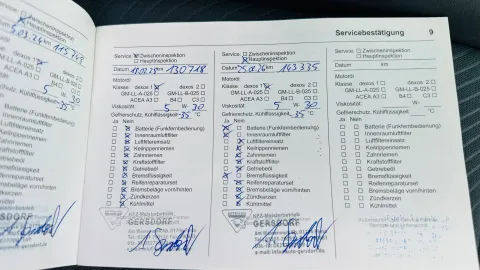 Servicebestätigung 9
5.03.24 115743
dexos 2
GM-LL-B-025
C3
5 W- 30
-35 °C
Batterie (Funkfernbedienung)
Innenraumluftfilter
Luftfiltereinsatz
Keilrippenriemen
Zahnriemen
Kraftstofffilter
Getriebeöl
Bremsflüssigkeit
Reifenreparaturset
Bremsbeläge vorn/hinten
Zündkerzen
Kühlmittel
GERSDORF
Service: Zwischeninspektion
Hauptinspektion
Datum 130718
Motoröl
Klasse: dexos 1 dexos 2
GM-LL-A-025 GM-LL-B-025
ACEA A3 B4 C3
Viskosität: 5 W- 30
Gefrierschutz, Kühlflüssigkeit -35 °C
Ja Nein
Batterie (Funkfernbedienung)
Innenraumluftfilter
Luftfiltereinsatz
Keilrippenriemen
Zahnriemen
Kraftstofffilter
Getriebeöl
Bremsflüssigkeit
Reifenreparaturset
Bremsbeläge vorn/hinten
Zündkerzen
Kühlmittel
KFZ-Meisterbetrieb
GERSDORF
Service: Zwischeninspektion
Hauptinspektion
Datum 143335
Motoröl
Klasse: dexos 1 dexos 2
GM-LL-A-025 GM-LL-B-025
ACEA A3 B4 C3
Viskosität: 5 W- 30
Gefrierschutz, Kühlflüssigkeit -35 °C
Ja Nein
Batterie (Funkfernbedienung)
Innenraumluftfilter
Luftfiltereinsatz
Keilrippenriemen
Zahnriemen
Kraftstofffilter
Getriebeöl
Bremsflüssigkeit
Reifenreparaturset
Bremsbeläge vorn/hinten
Zündkerzen
Kühlmittel
KFZ-Meisterbetrieb
GERSDORF
Service: Zwischeninspektion
Hauptinspektion
Datum km
Motoröl
Klasse: dexos 1 dexos 2
GM-LL-A-025 GM-LL-B-025
ACEA A3 B4 C3
Viskosität: W-
Gefrierschutz, Kühlflüssigkeit °C
Ja Nein
Batterie (Funkfernbedienung)
Innenraumluftfilter
Luftfiltereinsatz
Keilrippenriemen
Zahnriemen
Kraftstofffilter
Getriebeöl
Bremsflüssigkeit
Reifenreparaturset
Bremsbeläge vorn/hinten
Zündkerzen
Kühlmittel